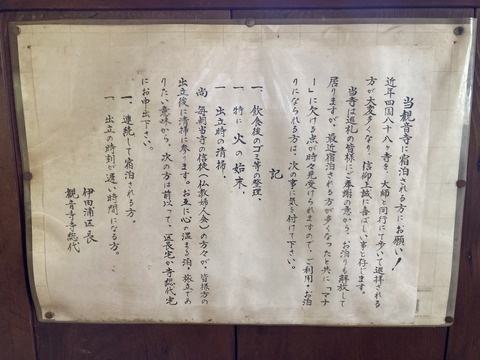 当観音寺に宿泊される方にお願い！
近年四国八十八ヶ寺を、大師と同行にて歩いて巡拝される
方が大変多くなり、信仰上誠に喜ばしい事と存じます。
当寺は巡礼の皆様にご奉謝の意から、お泊りも解放して
居りますが、最近宿泊される方が多くなったと共に「マナ
ー」に欠ける点が時々見受けられますので、ご利用・お泊
りになられる方は、次の事に気を付けて下さい。
記
一、飲食後のゴミ等の整理、
一 特に 火の始末、
一 出立時の清掃、
尚 毎朝当寺の信徒(仏教婦人会)の方々が、皆様方の
出立後に清掃に参ります。お互に心の温まる泊・旅立であ
りたい意味から、次の方は前以って、区長宅か寺総代宅
にお申出下さい。
一、連続して宿泊される方。
一 出立の時刻が遅い時間になる方。
伊田浦区長
観音寺寺総代